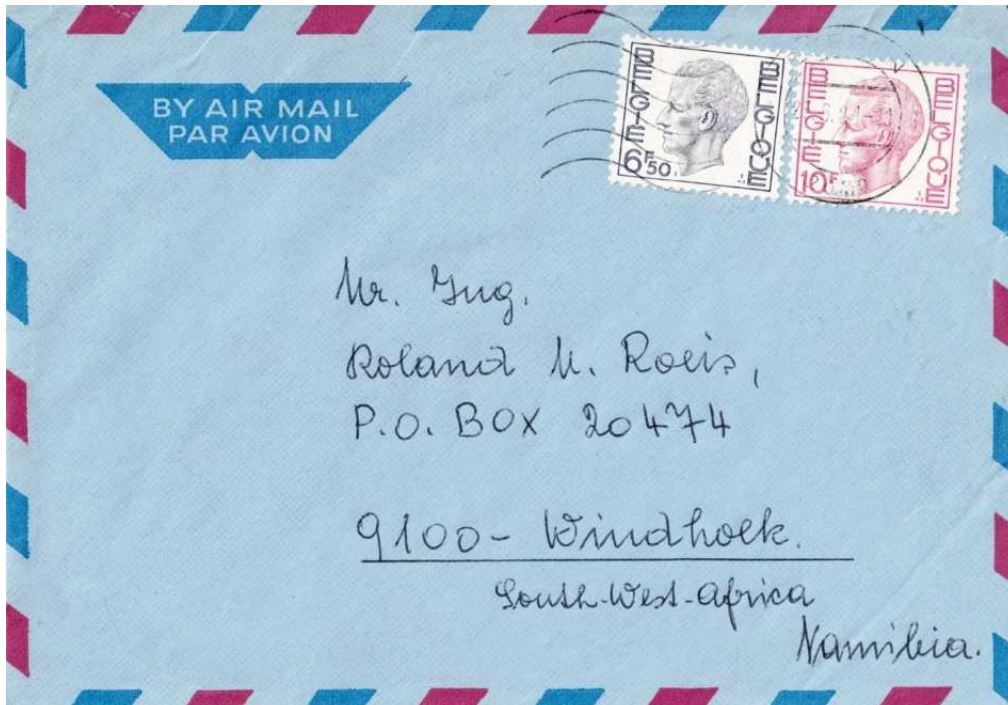 BY AIR MAIL
PAR AVION
BELGIE BELGIQUE
6F50
BELGIE BELGIQUE
10F
Mr. Ing.
Roland M. Roeis,
P.O. BOX 20474
9100 - Windhoek.
South-West-Africa
Namibia.